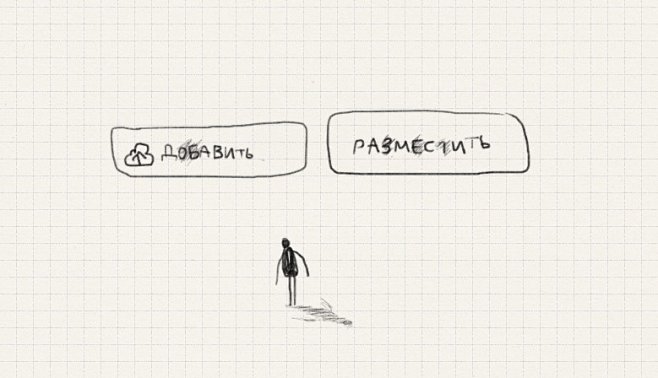 ДОБАВИТЬ
РАЗМЕСТИТЬ